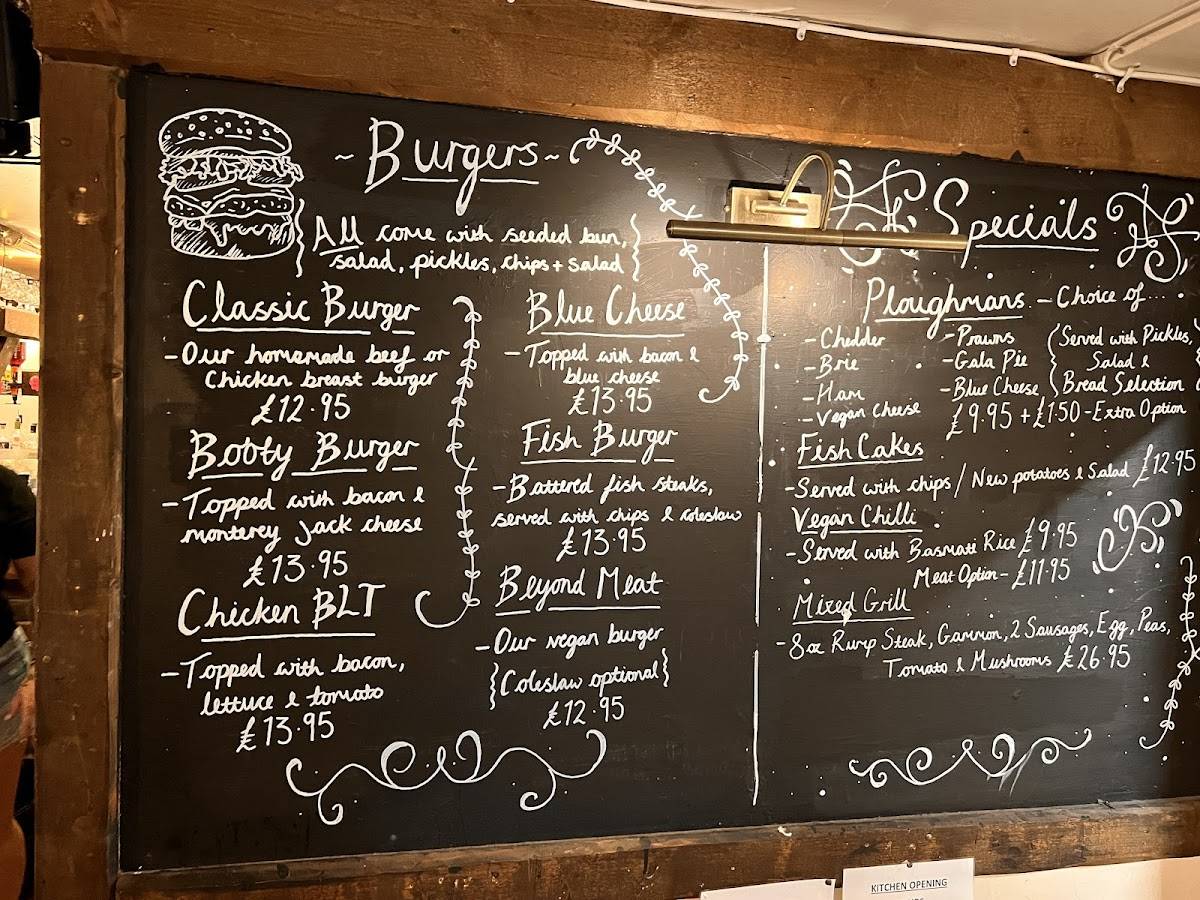 ~ Burgers ~
{ All come with seeded bun, }
{ salad, pickles, chips + salad }
Classic Burger
- Our homemade beef or
Chicken breast burger
£12.95
Booty Burger
- Topped with bacon &
monterey Jack cheese
£13.95
Chicken BLT
- Topped with bacon,
lettuce & tomato
£13.95
Blue Cheese
- Topped with bacon &
blue cheese
£13.95
Fish Burger
- Battered fish steaks,
served with chips & coleslaw
£13.95
Beyond Meat
- Our vegan burger
{Coleslaw optional}
£12.95
Specials
Ploughmans - Choice of...
- Chedder
- Brie
- Ham
- Vegan Cheese
- Prawns
- Gala Pie
- Blue Cheese
{ Served with Pickles,
Salad &
Bread Selection
£9.95 + £1.50 - Extra Option
Fish Cakes
- Served with chips / New potatoes & Salad £12.95
Vegan Chilli
- Served with Basmati Rice £9.95
Meat Option - £11.95
Mixed Grill
- 8oz Rump Steak, Gammon, 2 Sausages, Egg, Peas,
Tomato & Mushrooms £26.95
KITCHEN OPENING